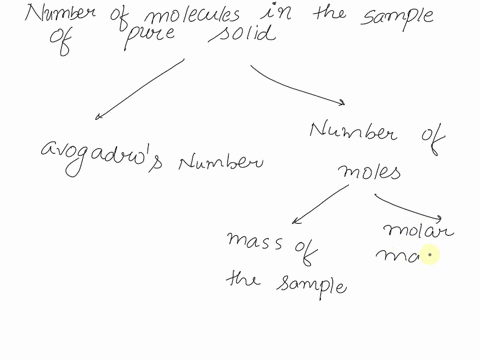 Number of molecules in the sample
of pure solid
avogadro's Number
Number of
moles
mass of
the sample
molar
ma